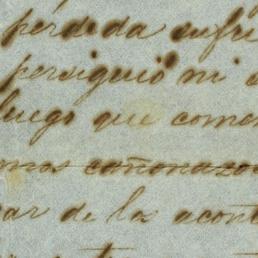 perdida sufri
persiguió ni
luego que comen
mas cañonazos
ar de los acont